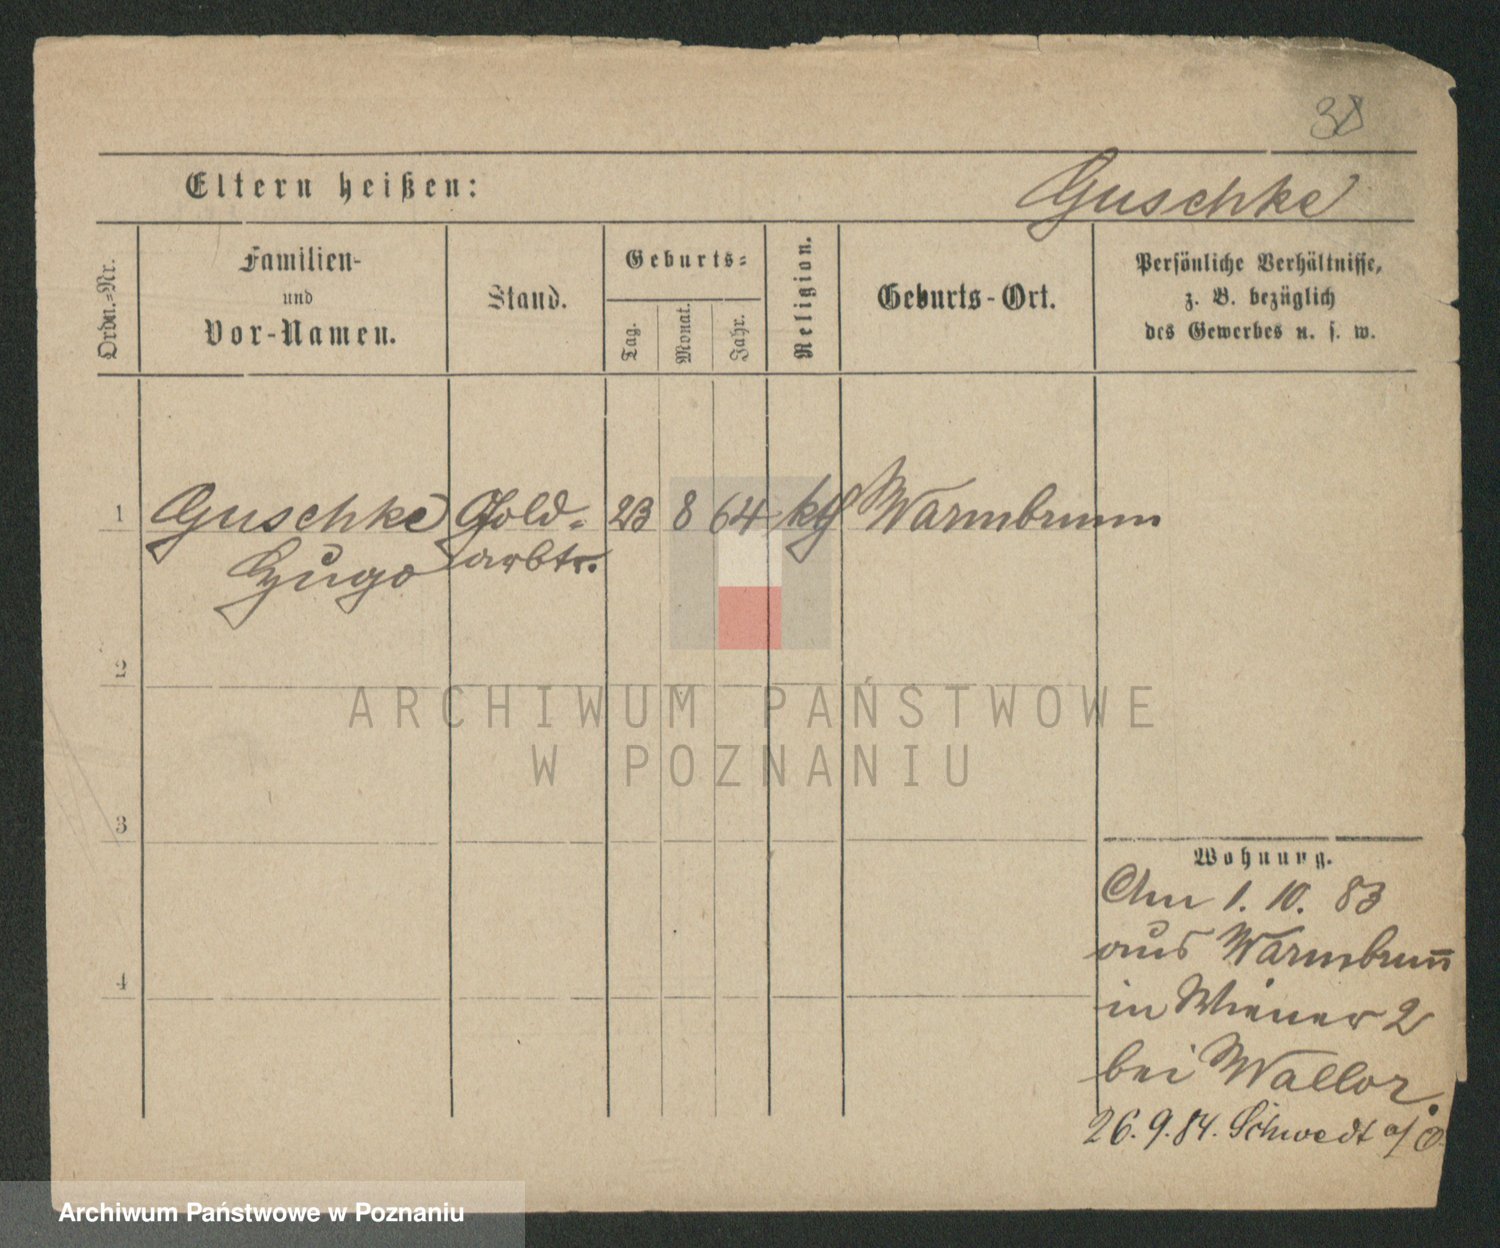 38
Eltern heißen:
Guschke
Ordn.-Nr.
Familien-
und
Vor-Namen.
Stand.
Geburts-
Tag.
Monat.
Jahr.
Religion.
Geburts-Ort.
Persönliche Verhältnisse,
z. B. bezüglich
des Gewerbes u. s. w.
1 Guschke Gold- 23 8 64 kth Warmbrunn
Hugo arbtr.
2
3
4
Wohnung.
Am 1. 10. 83
aus Warmbrun̄
in Wiener 2
bei Wallor.
26. 9. 84. Schwedt a/O.
ARCHIWUM PAŃSTWOWE
W POZNANIU
Archiwum Państwowe w Poznaniu